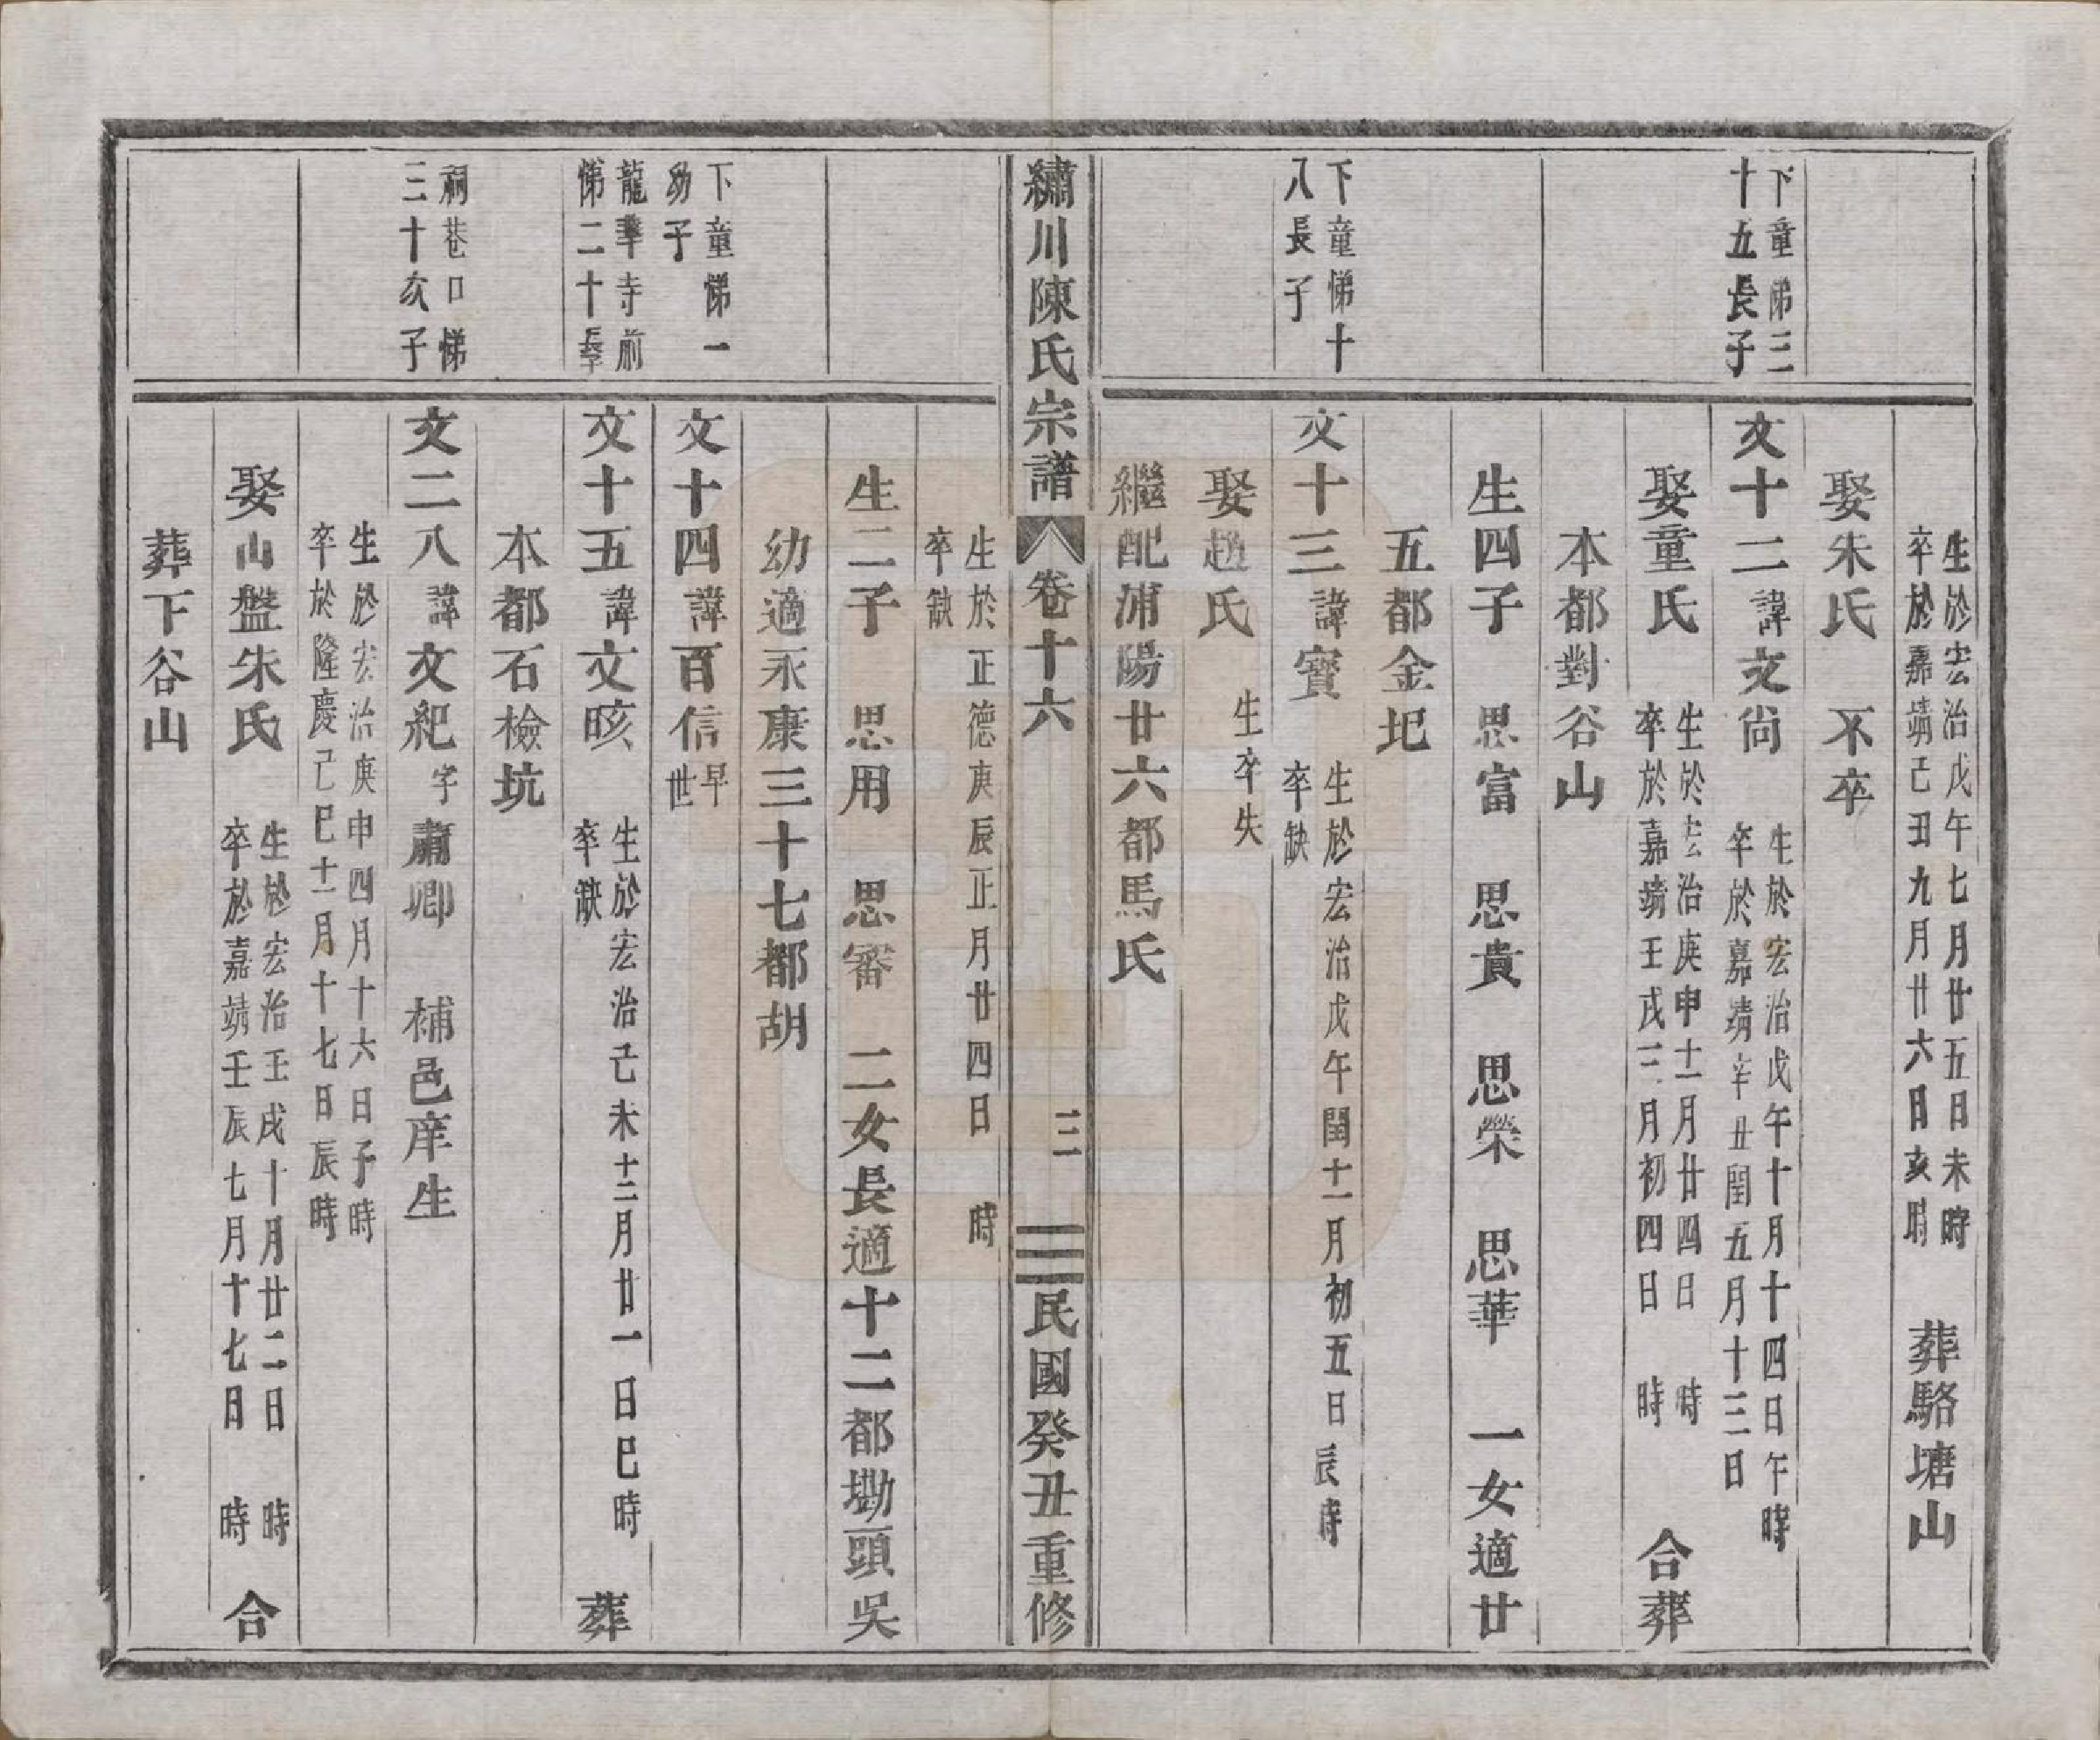 生於宏治戊午七月廿五日未時
卒於嘉靖己丑九月廿六日亥時
葬駱塘山
娶朱氏 不卒
下童悌三
十五長子
文十二諱文尙
生於宏治戊午十月十四日午時
卒於嘉靖辛丑閏五月十三日
娶童氏
生於宏治庚申十一月廿四日 時
卒於嘉靖壬戌三月初四日 時
合葬
本都對谷山
生四子 思富 思貴 思榮 思華 一女適廿
五都金圯
下童悌十
八長子
文十三諱寶
生於宏治戊午閏十一月初五日辰時
卒缺
娶趙氏
生卒失
繼配浦陽廿六都馬氏
繡川陳氏宗譜 卷十六 三 民國癸丑重修
生於正德庚辰正月廿四日 時
卒缺
生二子 思用 思審 二女長適十二都墈頭吳
幼適永康三十七都胡
下童悌一
幼子
文十四諱百信
早
世
龍華寺前
悌二十長子
文十五諱文晐
生於宏治己未十二月廿一日巳時
卒缺
葬
本都石檢坑
祠巷口悌
三十次子
文二八諱文紀字肅卿 補邑庠生
生於宏治庚申四月十六日子時
卒於隆慶己巳十一月十七日辰時
娶山盤朱氏
生於宏治壬戌十月廿二日 時
卒於嘉靖壬辰七月十七日 時
合
葬下谷山